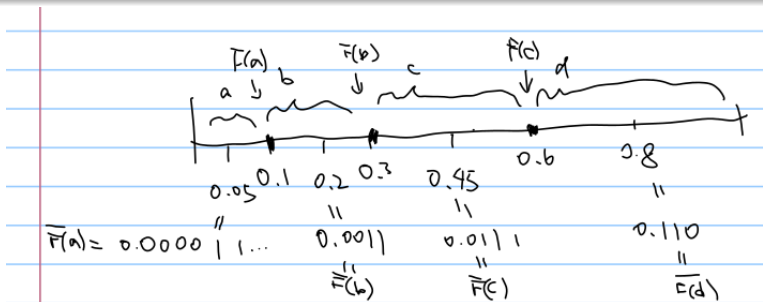 F(a) F(b) F(c)
a b c d
0.05 0.1 0.2 0.3 0.45 0.6 0.8
|| || || ||
F̅(a) = 0.0000 1 1... 0.0011 0.0111 0.110
|| || ||
F̅(b) F̅(c) F̅(d)